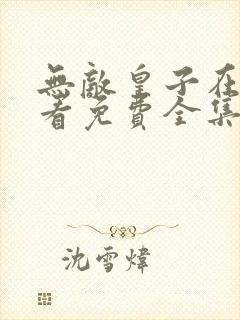 無敵皇子在
看免費全集
沈雪煒